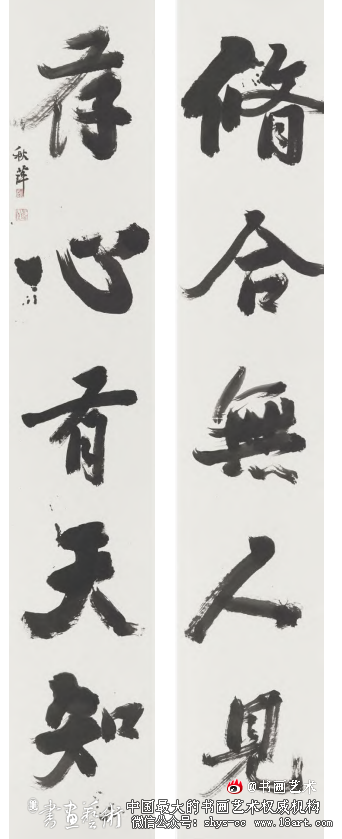 脩合無人見
存心有天知
秋萍
@书画艺术
書画藝術
中国最大的书画艺术权威机构
微信公众号：shys-cc www.18art.com